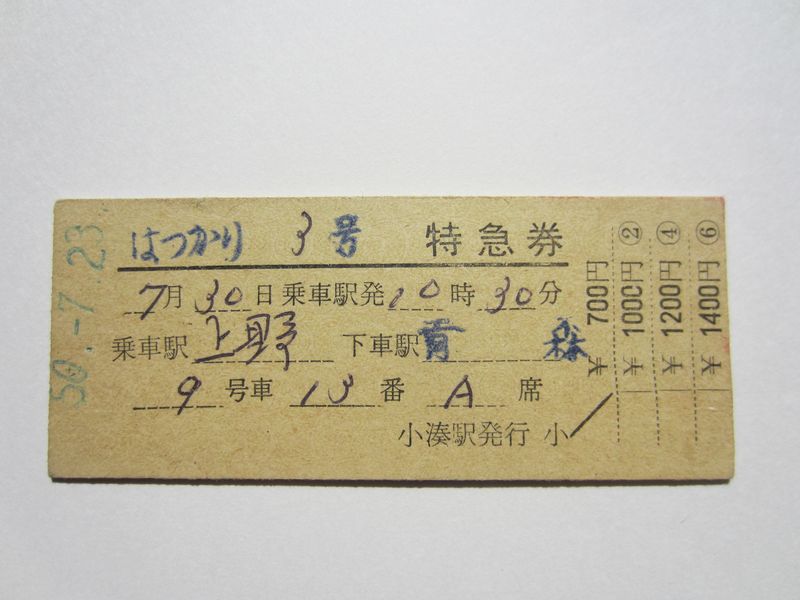 50.-7.23
はつかり 3号 特急券
7月30日乗車駅発10時30分
乗車駅 上野 下車駅 青森
9号車 13番 A席
小湊駅発行 小
¥700円
¥1000円②
¥1200円④
¥1400円⑥